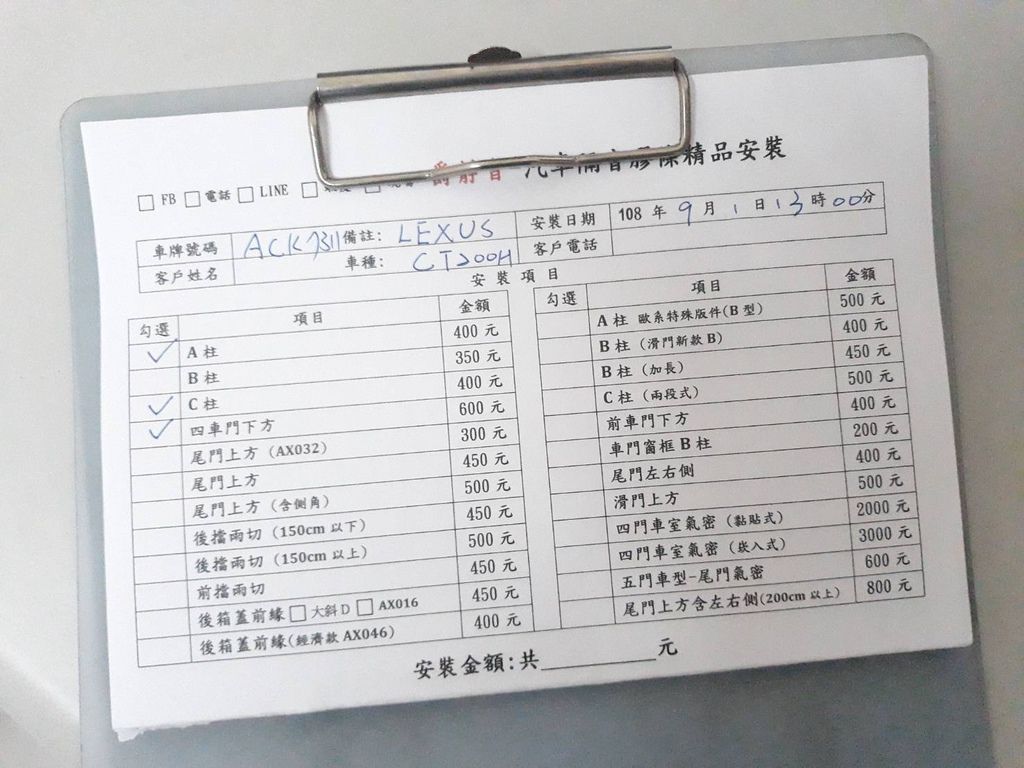 爵靜音 汽車隔音膠條精品安裝
□ FB □ 電話 □ LINE □ □
車牌號碼 ACK7311 備註: LEXUS 安裝日期 108 年 9 月 1 日 13 時 00 分
客戶姓名 車種: CT200H 客戶電話
安裝項目
勾選 項目 金額
✓ A 柱 400 元
B 柱 350 元
✓ C 柱 400 元
✓ 四車門下方 600 元
尾門上方 (AX032) 300 元
尾門上方 450 元
尾門上方 (含側角) 500 元
後擋雨切 (150cm 以下) 450 元
後擋雨切 (150cm 以上) 500 元
前擋雨切 450 元
後箱蓋前緣 □ 大斜 D □ AX016 450 元
後箱蓋前緣(經濟款 AX046) 400 元
勾選 項目 金額
A 柱 歐系特殊版件(B 型) 500 元
B 柱 (滑門新款 B) 400 元
B 柱 (加長) 450 元
C 柱 (兩段式) 500 元
前車門下方 400 元
車門窗框 B 柱 200 元
尾門左右側 400 元
滑門上方 500 元
四門車室氣密 (黏貼式) 2000 元
四門車室氣密 (崁入式) 3000 元
五門車型-尾門氣密 600 元
尾門上方含左右側(200cm 以上) 800 元
安裝金額:共________元